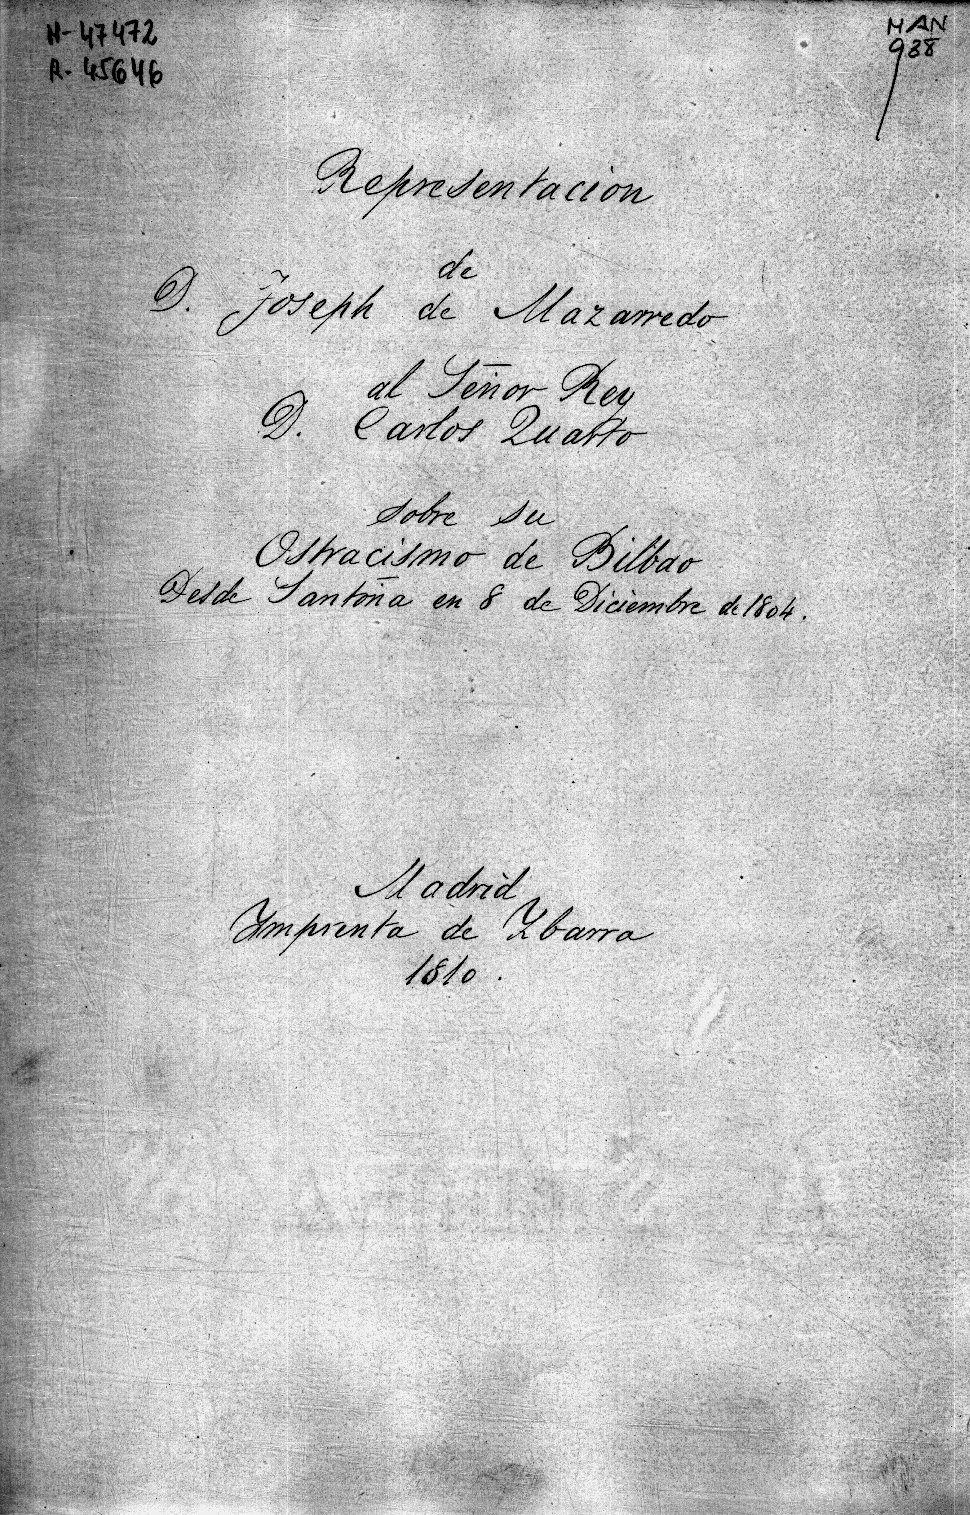 N-47472
R-45646
MAN
938
Representacion
de
D. Joseph de Mazarredo
al Señor Rey
D. Carlos Quarto
sobre su
Ostracismo de Bilbao
Desde Santoña en 8 de Diciembre de 1804.
Madrid
Ymprenta de Ybarra
1810.